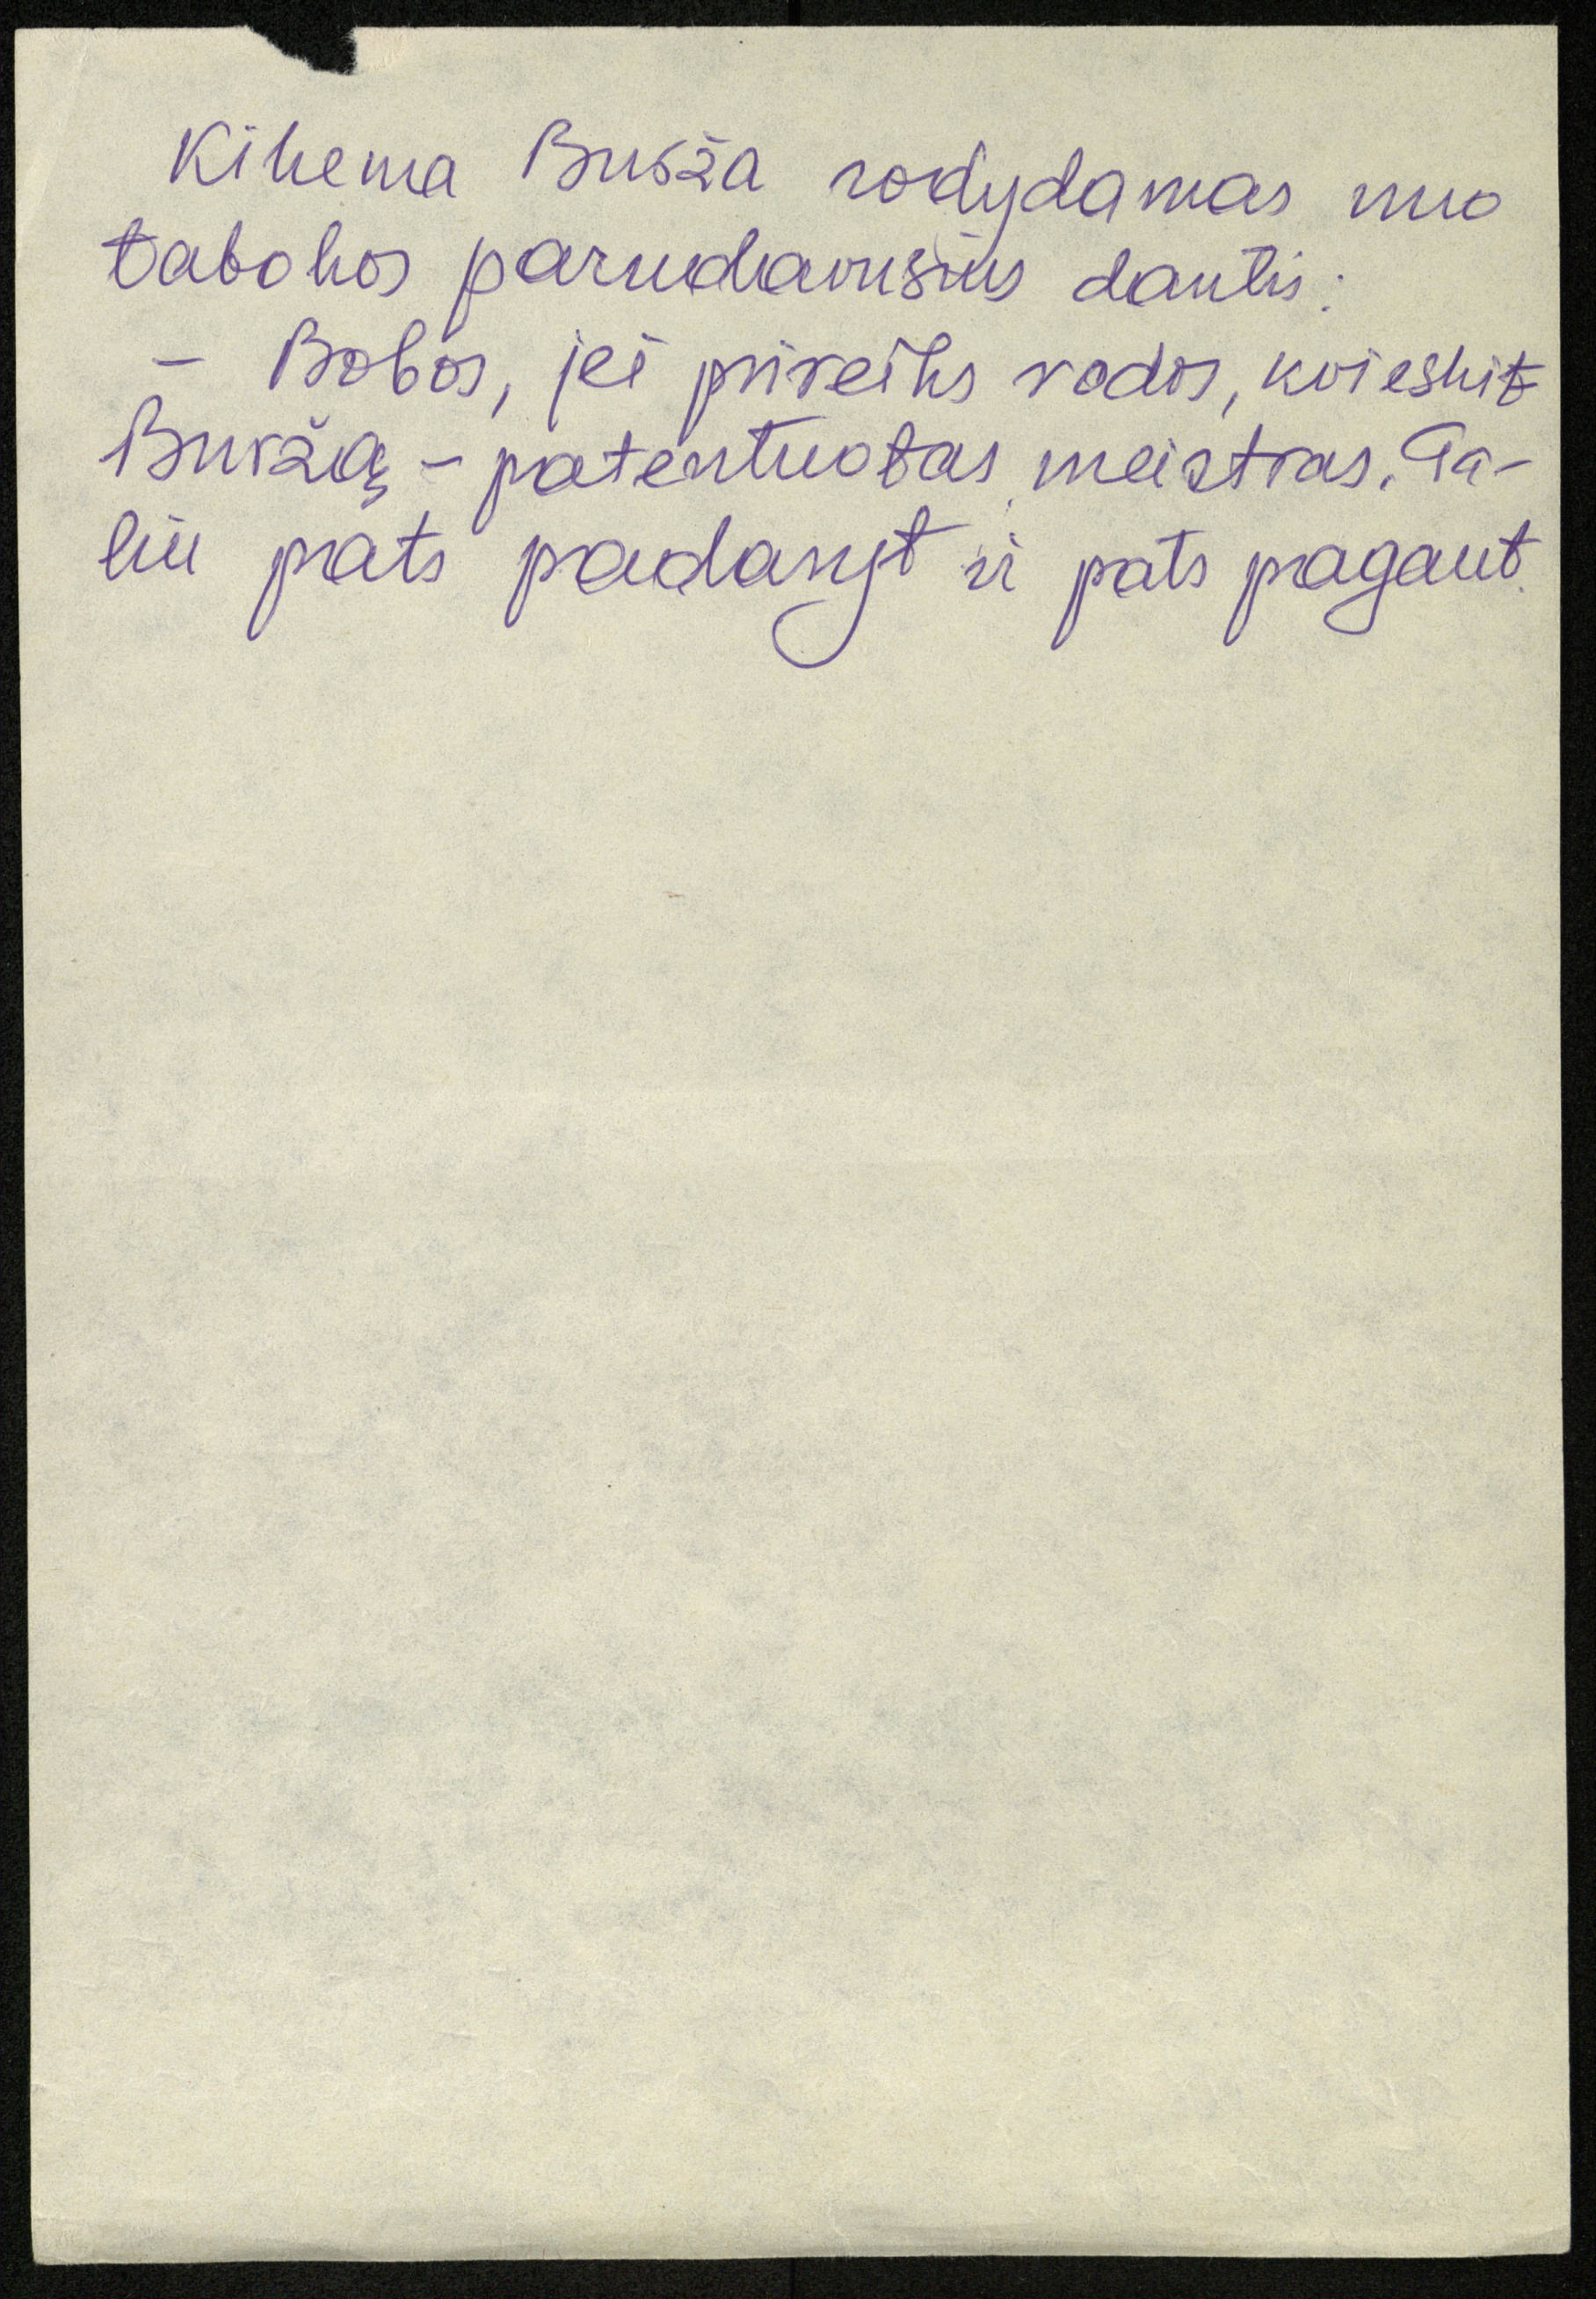 Kikena Buržа rodydamas nuo
tabokos parudavusius dantis:
– Bobos, jei prireiks rodos, kvieskit
Buržą – patentuotas meistras. Ga-
liu pats padaryt ir pats pagaut.